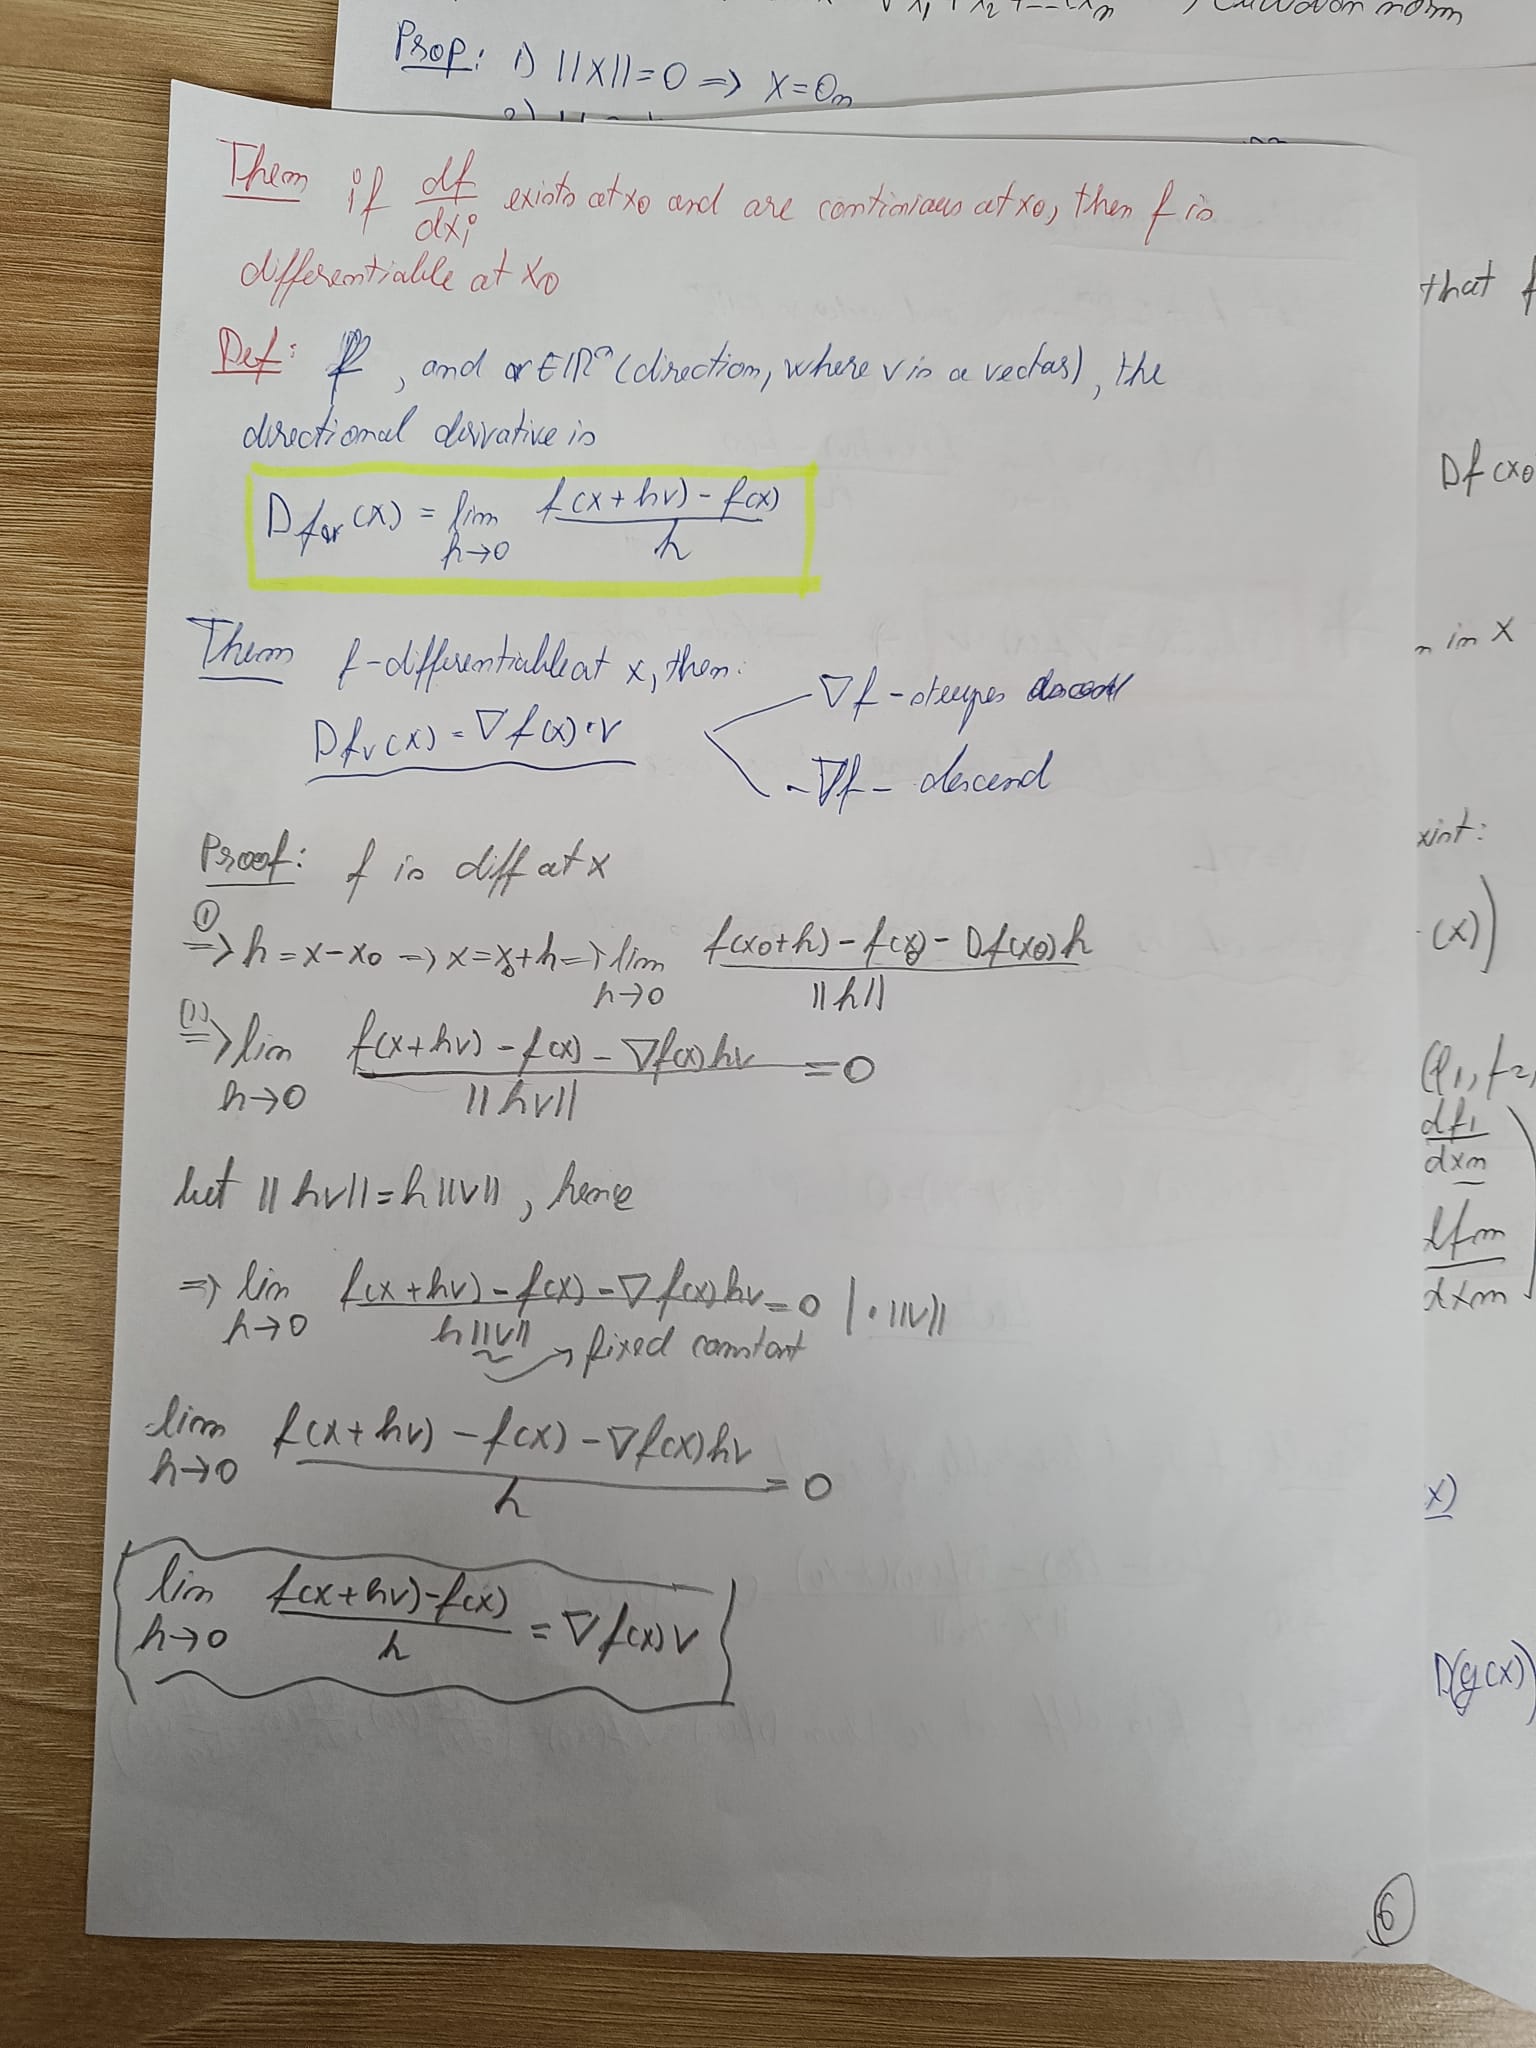 Prop: 1) ||X||=0 => X=0n
Them if df/dxi exists at x0 and are continious at x0, then f is
differentiable at x0
Def: f, and v∈ℝⁿ (direction, where v is a vector), the
directional derivative is
D fv (x) = lim h→0 f(x+hv) - f(x) / h
Them f-differentiable at x, then:
∇f - steepes
Dfv(x) = ∇f(x)·v
-∇f - descend
Proof: f is diff at x
① => h = x-x0 => x=x0+h => lim h→0 f(x0+h) - f(x0) - Df(x0)h / ||h||
(1) => lim h→0 f(x+hv) - f(x) - ∇f(x)hv / ||hv|| = 0
but ||hv||=h||v||, hence
=> lim h→0 f(x+hv) - f(x) - ∇f(x)hv / h||v|| = 0 | · ||v||
→ fixed constant
lim h→0 f(x+hv) - f(x) - ∇f(x)hv / h = 0
lim h→0 f(x+hv)-f(x) / h = ∇f(x)v
6
that f
Df(x0
in X
xist:
(x))
(f1, f2,
df1/dxn
dfm/dxm
x)
D(g(x))